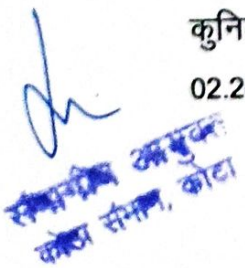 कुनि
02.2
संभागीय आयुक्त
कोटा संभाग, कोटा